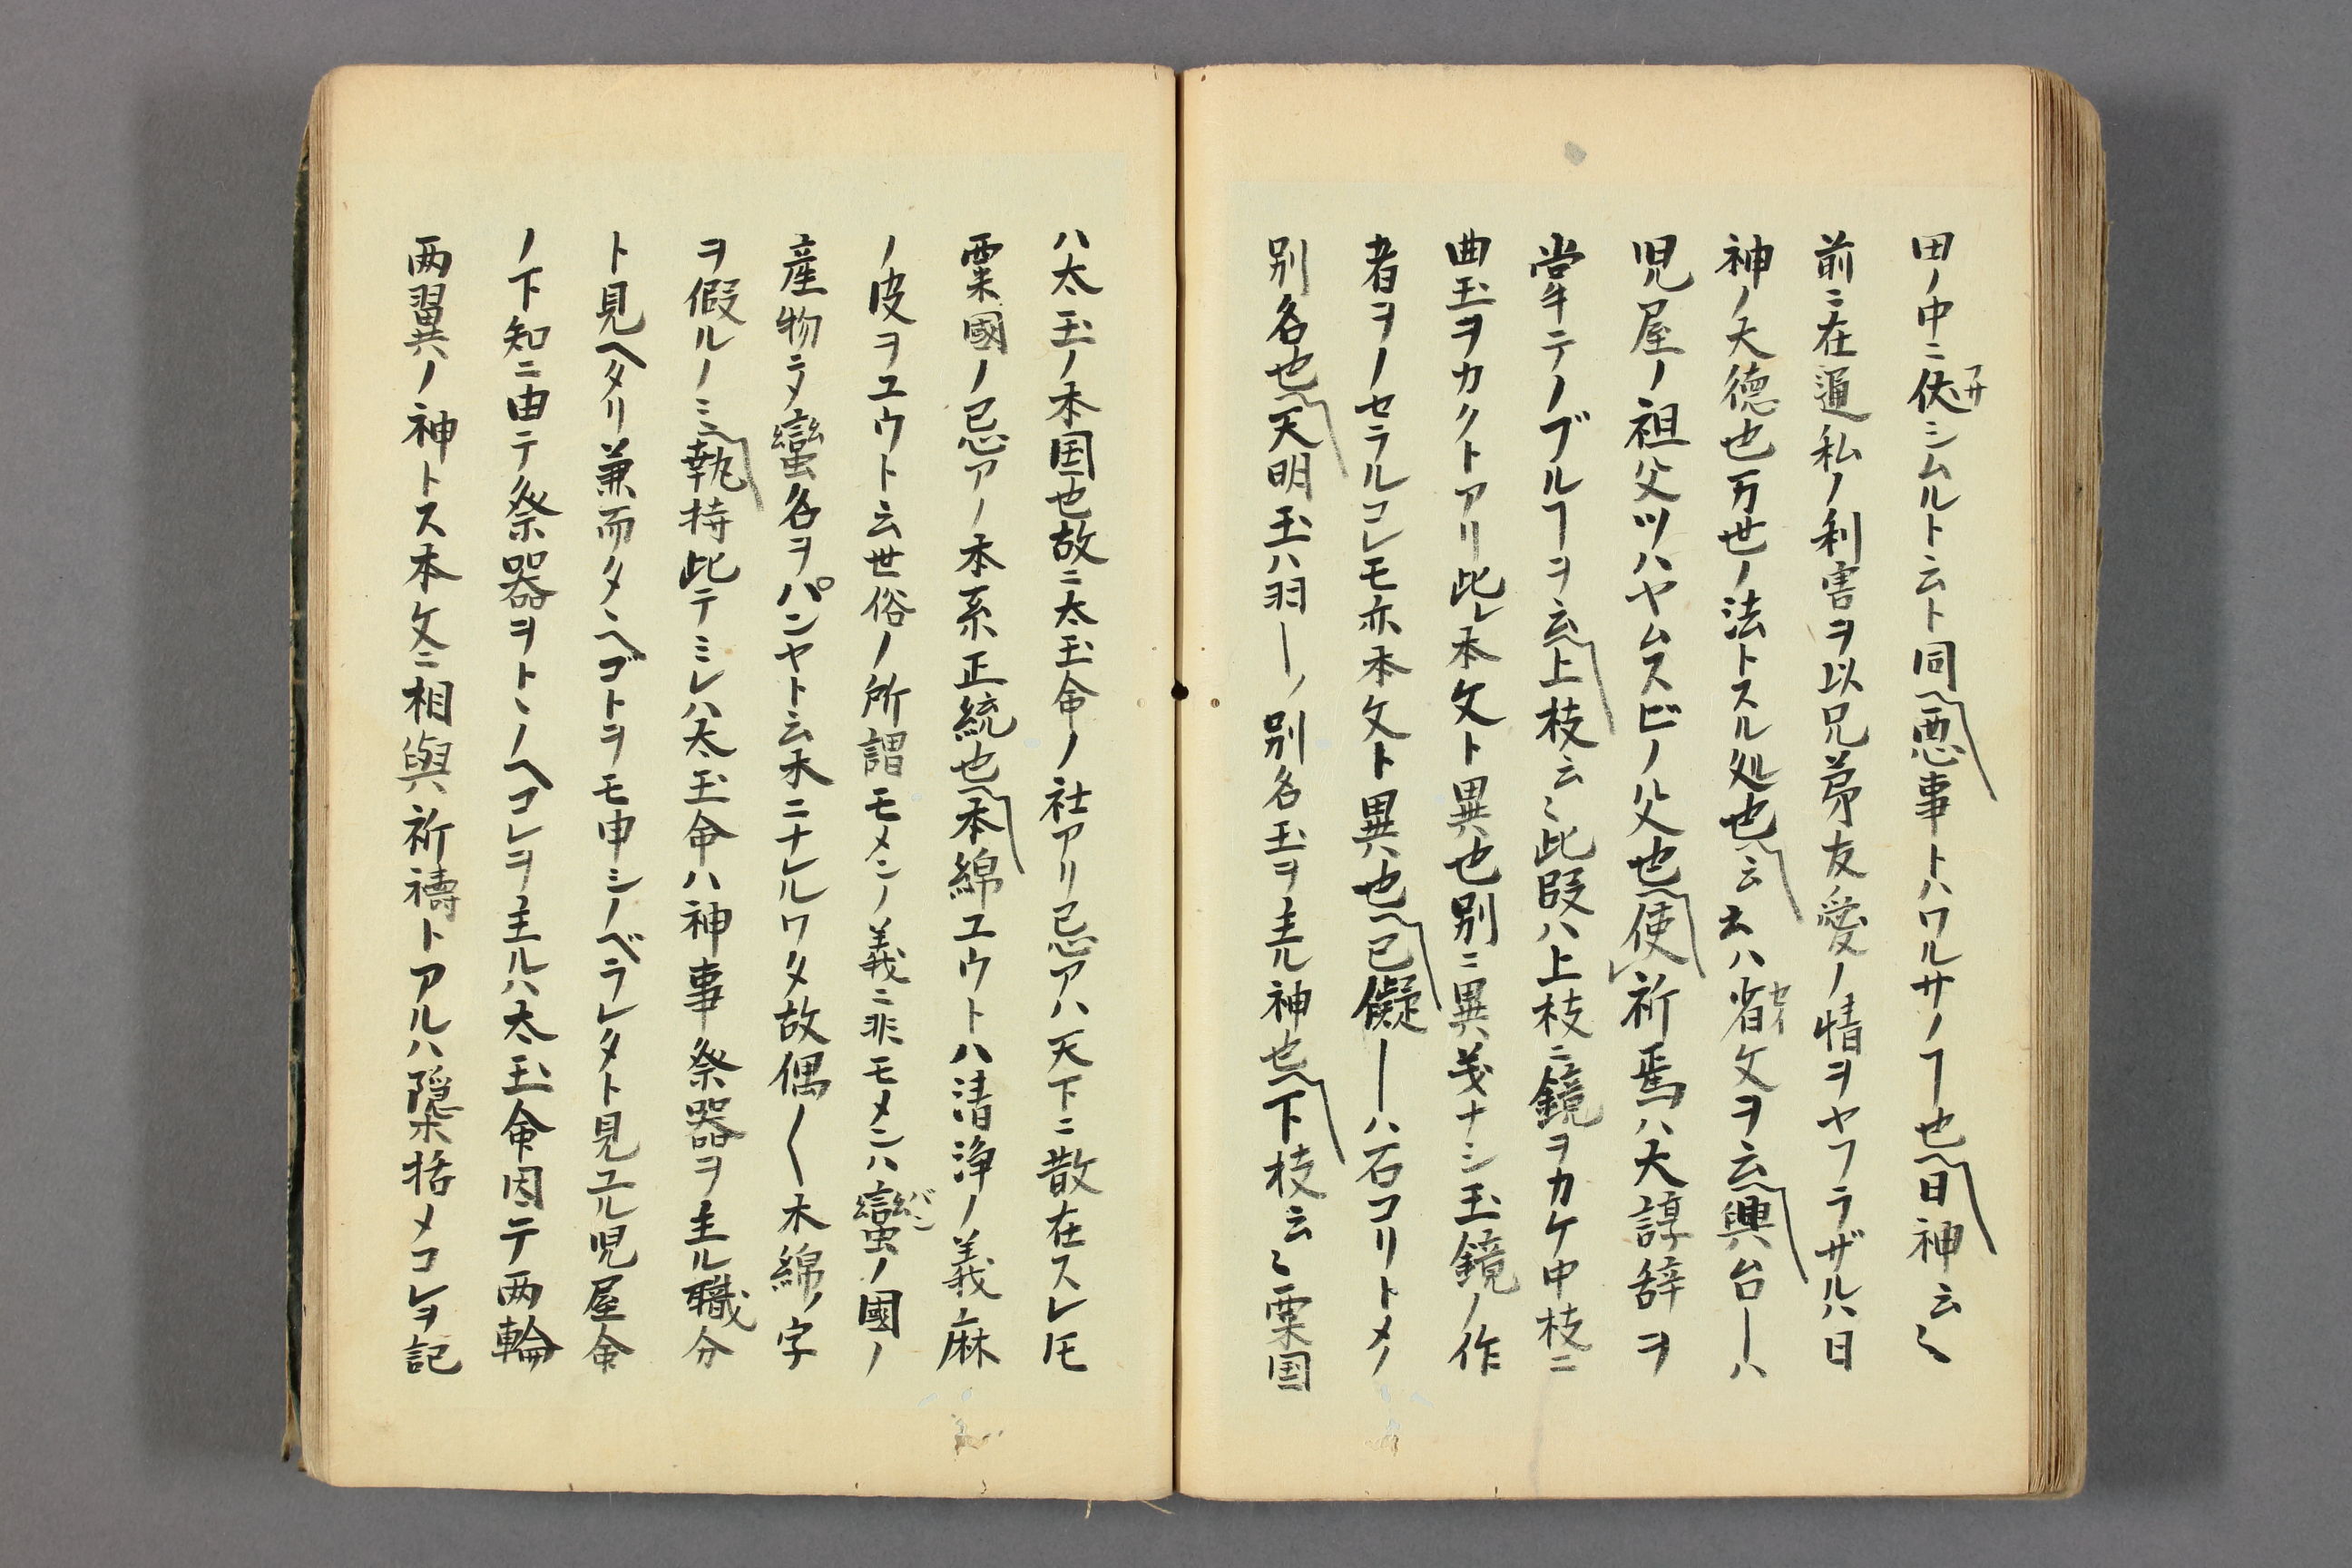 田ノ中ニ伏シムルト云ト同〽悪事トハワルサノヿ也〽日神云〻
前ニ在逼私ノ利害ヲ以兄弟友愛ノ情ヲヤフラザルハ日
神ノ大徳也万世ノ法トスル処也〽云云ハ省文ヲ云〽興台―ハ
児屋ノ祖父ツハヤムスビノ父也〽使祈焉ハ大諄辞ヲ
掌テノブルヿヲ云〽上枝云〻此段ハ上枝ニ鏡ヲカケ中枝ニ
曲玉ヲカクトアリ此レ本文ト異也別ニ異義ナシ玉鏡ノ作
者ヲノセラルコレモ亦本文ト異也〽已儗―ハ石コリトメノ
別名也〽天明玉ハ羽―ノ別名玉ヲ主ル神也〽下枝云〻粟国
ハ太玉ノ本国也故ニ太玉命ノ社アリ忌アハ天下ニ散在スレ𪜈
粟國ノ忌アノ本系正統也〽木綿ユウトハ清浄ノ義麻
ノ皮ヲユウト云世俗ノ所謂モメンノ義ニ非モメンハ蠻ノ國ノ
産物ニ〆蠻名ヲパンヤト云木ニナルワタ故偶〱木綿ノ字
ヲ假ルノミ〽執持此テミレハ太玉命ハ神事祭器ヲ主ル職分
ト見ヘタリ兼而タヽヘゴトヲモ申シノベラレタト見ユル児屋命
ノ下知ニ由テ祭器ヲトヽノヘコレヲ主ルハ太玉命因テ両輪
両翼ノ神トス本文ニ相與祈禱トアルハ隠括〆コレヲ記